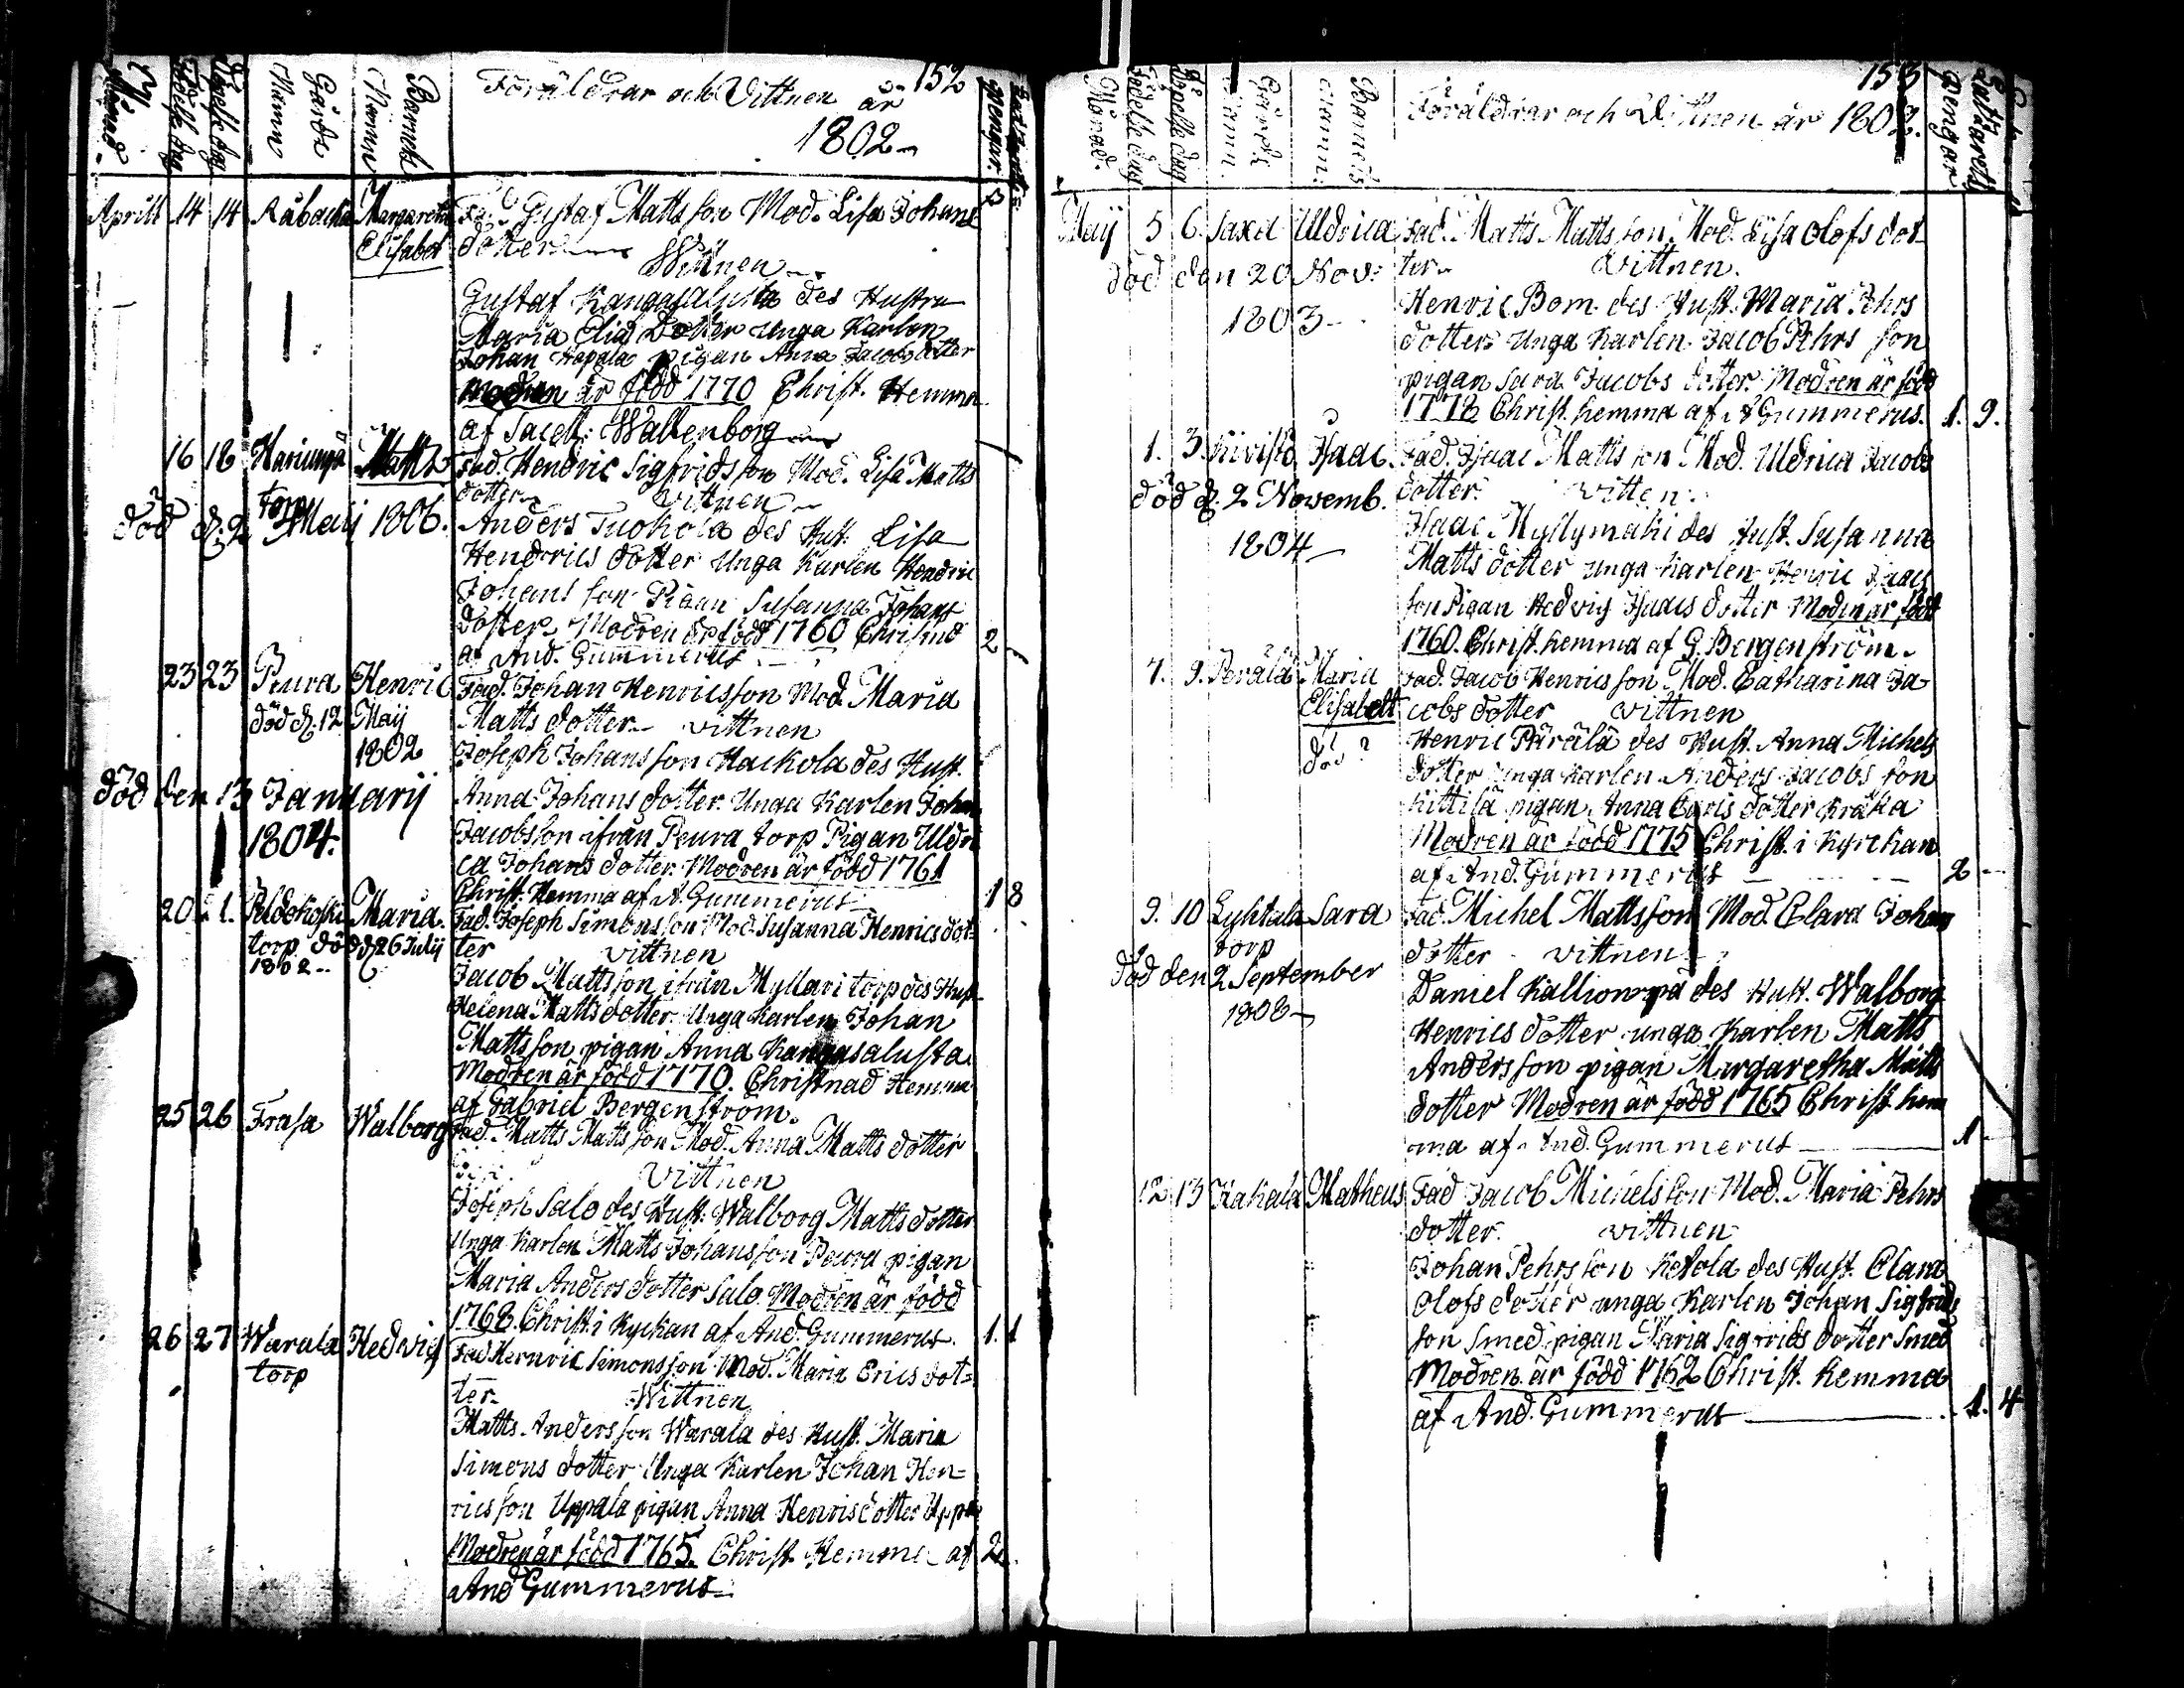 152
Föräldrar och Vittnen år
1802
Månad
Födelse dag
Döpelse dag
Gårds Namn
Barnets Namn
Aprill 14 14 Råbacka Margaretha Fad. Gustaf Mattsson Mod. Lisa Johans
Elisabet dotter
Wittnen
Gustaf Kangasalusta des Hustru
Maria Elias Dotter Unga Karlen
Johan Kapala pigan Anna Jacobs dotter
Modren är född 1770 Christ. Hemma
af Sacell: Wallenborg
16 16 Hariunpä Matts Fad. Hendric Sigfridsson Mod. Lisa Matts
torp dotter vittnen
död d. 2 Maij 1806. Anders Tuokola des Hust: Lisa
Hendrics dotter Unga Karlen Hendric
Johans son Pigan Susanna Johans
dotter Modren är född 1760 Christnad
af And. Gummerus 2
23 23 Peura Henric Fad. Johan Henricsson Mod. Maria
död d. 12 Maij Matts dotter vittnen
1802 Joseph Johansson Hackola des Hust.
död den 13 Januarij Anna Johans dotter. Unga Karlen Johan
1804. Jacobsson ifrån Peura torp Pigan Uldri
ca Johans dotter. Modren är född 1761
Christ. Hemma af A. Gummerus 1 8
20 1. Peldokoski Maria. Fad. Joseph Simonsson Mod. Susanna Henrics dot=
torp död d. 26 Julij ter vittnen
1802 Jacob Mattsson ifrån Myllari torp des Hust
Helena Matts dotter. Unga Karlen Johan
Mattsson pigan Anna Kangasalusta
Modren är född 1770. Christnad Hemma
af Gabriel Bergenström.
25 26 Frasa Walborg Fad. Matts Mattsson Mod. Anna Matts dotter
Vittnen
Joseph Salo des Hust. Walborg Matts dotter
Unga Karlen Matts Johansson Peura pigan
Maria Anders dotter Salo. Modren är född
1768. Christ. i Kyrkan af And. Gummerus. 1. 1
26 27 Warala Hedvig Fad Hernric Simonsson Mod. Maria Erics dot=
torp ter. Wittnen
Matts Andersson Warala des Hust. Maria
Simons dotter Unga Karlen Johan Hen=
ricsson Uppala pigan Anna Henrics dotter Uppala
Modren är född 1765. Christ. Hemma af 2
And Gummerus
153
Föräldrar och Vittnen år 1802.
Månad.
Födelse dag
Döpelse dag
Gårds Namn.
Barnets Namn.
Pengar
Maij 5 6. Saxa Uldrica Fad. Matts Mattsson. Mod. Lisa Olofs dot
död den 20 Nov: ter Vittnen.
1803 Henric Bom des Hust. Maria Pehrs
dotter Unga Karlen Jacob Pehrs son
pigan Sara Jacobs dotter. Modren är född
1772 Christ. hemma af A Gummerus. 1. 9.
1. 3. Kivistö Isaac. Fad. Isaac Mattsson Mod. Uldrica Jacobs
död d. 2 Novemb. dotter. vitten.
1804 Isaac Myllymäki des Hust. Susanna
Matts dotter unga Karlen Henric Isaacs
son Pigan Hedvig Isaacs dotter Modren är född
1760. Christ. hemma af G. Bergenström.
7. 9. Perälä Maria Fad. Jacob Henricsson Mod. Catharina Ja
Elisabeth cobs dotter vittnen
död? Henric Pärälä des Hust. Anna Michels
dotter unga Karlen Anders Jacobs son
Kittilä pigan Anna Carls dotter Kråka
Modren är född 1775 Christ. i Kyrckan
af And. Gummerus 2
9. 10 Lyhtala Sara Fad. Michel Mattsson Mod. Clara Johans
torp dotter vittnen
död den 2 September Daniel Kallionpä des Hust. Walborg
1808 Henrics dotter unga Karlen Matts
Andersson pigan Margaretha Matts
dotter Modren är född 1765 Christ hem
ma af And. Gummerus 1
12 13 Kakala Matheus Fad Jacob Michelsson Mod. Maria Pehrs
dotter. vittnen
Johan Pehrsson Ketola des Hust. Clara
Olofs dotter unga Karlen Johan Sigfrids
son Smed pigan Maria Sigfrids dotter Smed
Modren är född 1762 Christ. Hemma
af And. Gummerus 1. 4